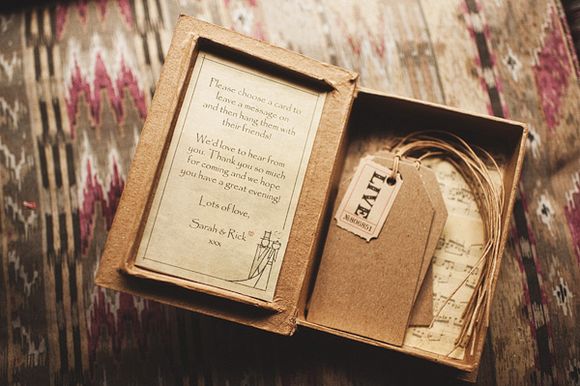 Please choose a card to
leave a message on
and then hang them with
their friends!
We'd love to hear from
you. Thank you so much
for coming and we hope
you have a great evening!
Lots of love,
Sarah & Rick
xxx
LIVE
№806851